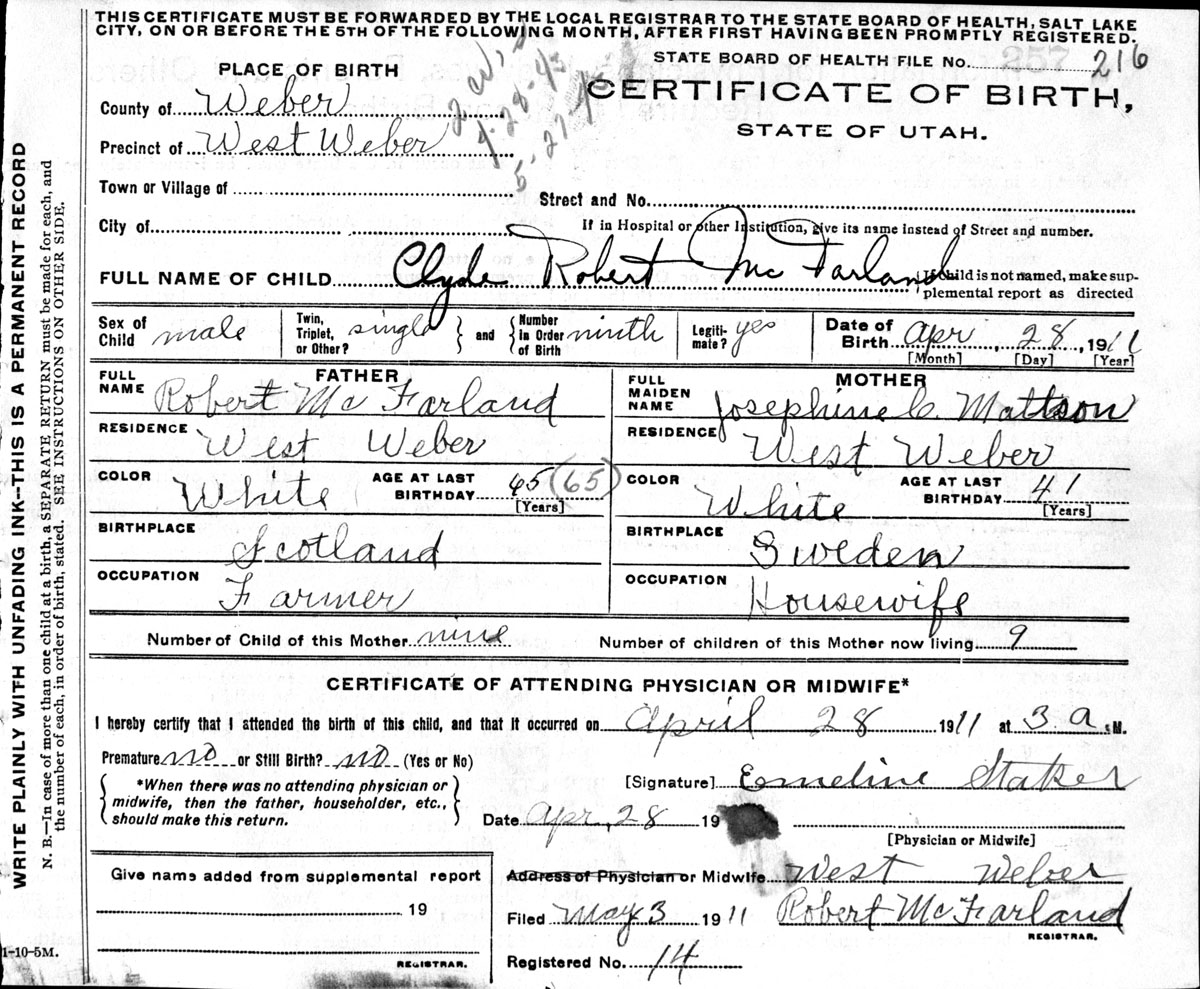 THIS CERTIFICATE MUST BE FORWARDED BY THE LOCAL REGISTRAR TO THE STATE BOARD OF HEALTH, SALT LAKE
CITY, ON OR BEFORE THE 5TH OF THE FOLLOWING MONTH, AFTER FIRST HAVING BEEN PROMPTLY REGISTERED.
STATE BOARD OF HEALTH FILE No. 216
PLACE OF BIRTH
CERTIFICATE OF BIRTH,
STATE OF UTAH.
County of Weber
Precinct of West Weber
4-28-4
5-27-4
Town or Village of
Street and No.
City of
If in Hospital or other Institution, give its name instead of Street and number.
FULL NAME OF CHILD Clyde Robert Mc Farland
If child is not named, make sup-
plemental report as directed
Sex of Child male
Twin, Triplet, or Other? single
and
Number in Order of Birth ninth
Legiti- mate? yes
Date of Birth Apr, 28, 1911
[Month] [Day] [Year]
FATHER
FULL NAME Robert Mc Farland
MOTHER
FULL MAIDEN NAME Josephine C. Mattson
RESIDENCE West Weber
RESIDENCE West Weber
COLOR White AGE AT LAST BIRTHDAY 65 (65) [Years]
COLOR White AGE AT LAST BIRTHDAY 41 [Years]
BIRTHPLACE Scotland
BIRTHPLACE Sweden
OCCUPATION Farmer
OCCUPATION Housewife
Number of Child of this Mother nine
Number of children of this Mother now living 9
CERTIFICATE OF ATTENDING PHYSICIAN OR MIDWIFE*
I hereby certify that I attended the birth of this child, and that it occurred on April 28 1911 at 3 a. M.
Premature no or Still Birth? no (Yes or No)
*When there was no attending physician or
midwife, then the father, householder, etc.,
should make this return.
[Signature] Emeline Staker
Date Apr, 28 19
[Physician or Midwife]
Address of Physician or Midwife West Weber
Filed May 3 1911 Robert McFarland
REGISTRAR.
Registered No. 14
Give name added from supplemental report
19
REGISTRAR.
1-10-5M.
WRITE PLAINLY WITH UNFADING INK—THIS IS A PERMANENT RECORD
N. B.—In case of more than one child at a birth, a SEPARATE RETURN must be made for each, and
the number of each, in order of birth, stated. SEE INSTRUCTIONS ON OTHER SIDE.